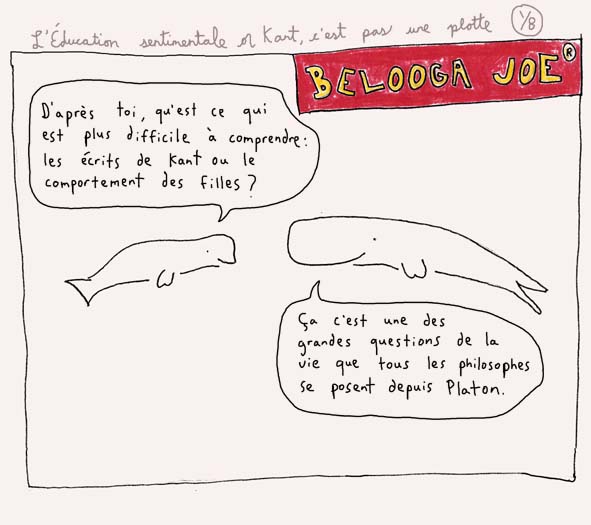 L'Éducation sentimentale or Kant, c'est pas une plotte 1/8
BELOOGA JOE®
D'après toi, qu'est ce qui
est plus difficile à comprendre:
les écrits de Kant ou le
comportement des filles?
Ça c'est une des
grandes questions de la
vie que tous les philosophes
se posent depuis Platon.